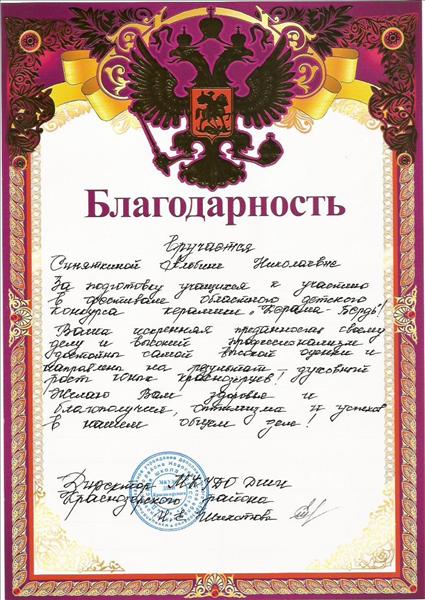 Благодарность
Вручается
Синяткиной Альбине Николаевне
За подготовку учащихся к участию
в фестивале областного детского
конкурса керамики "Керама-Бердь"!
Ваша искренняя преданность своему
делу и высокий профессионализм
достойны самой высокой оценки и
направлены на результат – духовный
рост юных краснозерцев!
Желаю Вам здоровья и
благополучия, оптимизма и успехов
в нашем общем деле!
Директор МКУДО ДШИ
Краснозерского района